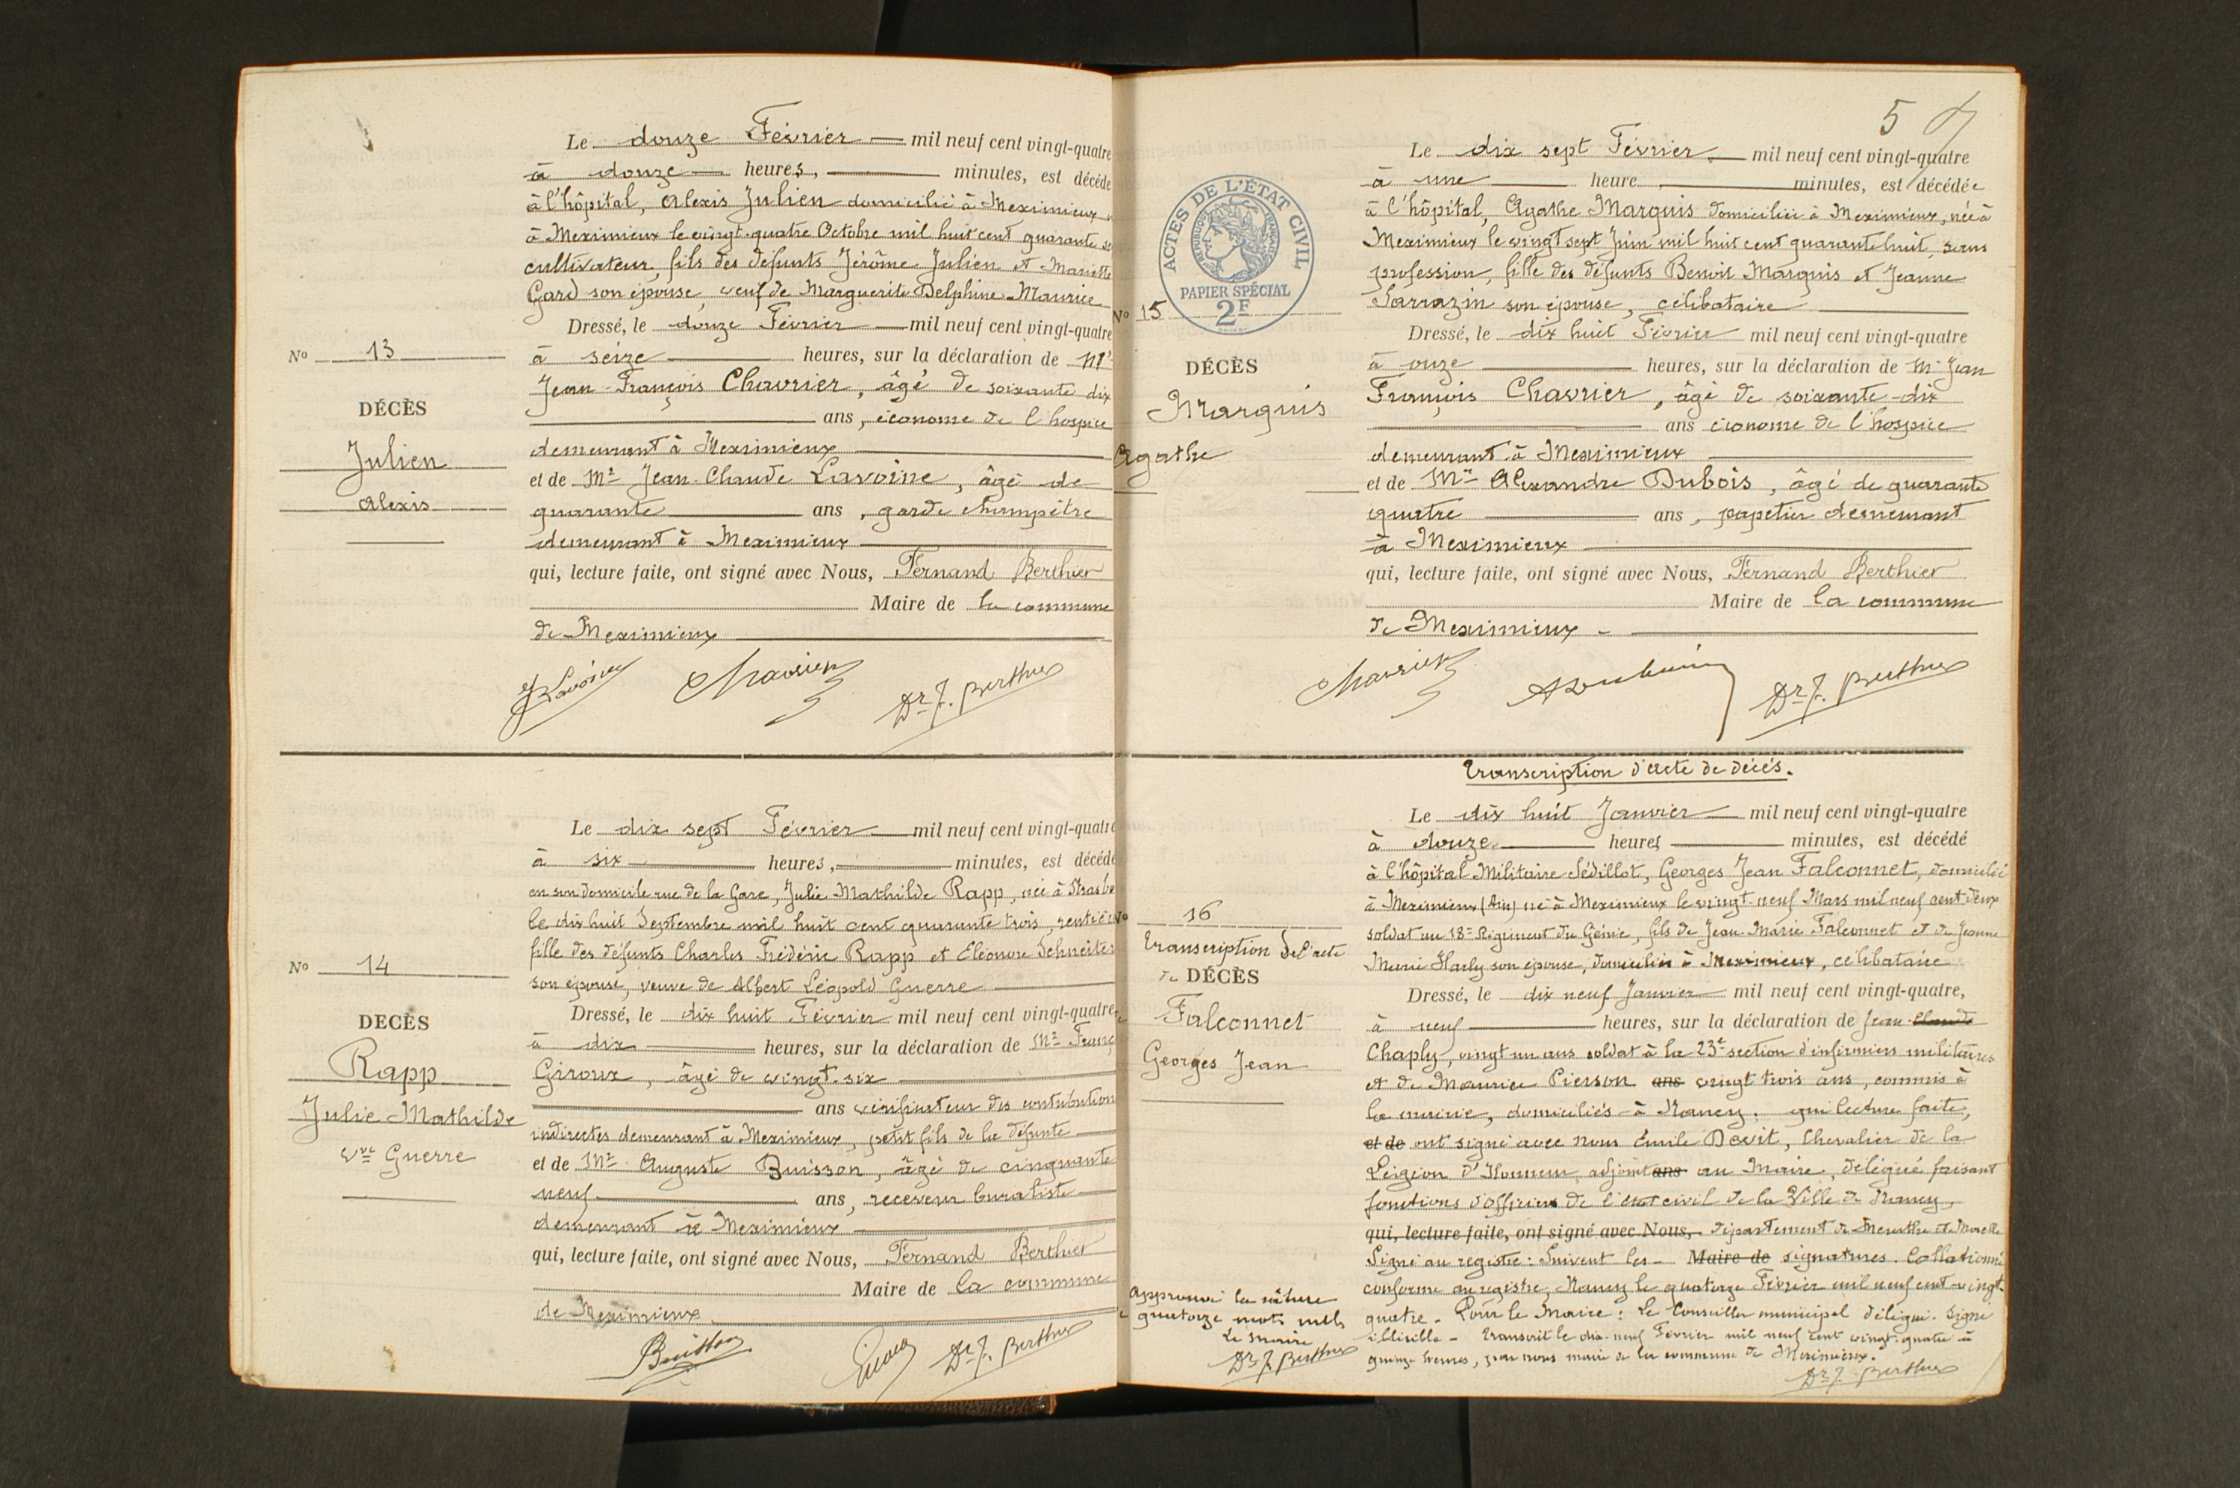 Le douze Février mil neuf cent vingt-quatre
à douze heures, minutes, est décédé
à l'hôpital, Alexis Julien domicilié à Meximieux
à Meximieux le vingt-quatre Octobre mil huit cent quarante
cultivateur, fils des défunts Jérôme Julien et
Gard son épouse, veuf de Marguerite Delphine Maurice
Dressé, le douze Février mil neuf cent vingt-quatre
No 13
à seize heures, sur la déclaration de Mr
Jean-François Chavrier, âgé de soixante dix
DÉCÈS
ans, économe de l'hospice
Julien
demeurant à Meximieux
et de Mr Jean-Claude Lavoine, âgé de
Alexis
quarante ans, garde champêtre
demeurant à Meximieux
qui, lecture faite, ont signé avec Nous, Fernand Berthier
Maire de la commune
de Meximieux
Lavoine Chavrier Dr F. Berthier
Le dix sept Février mil neuf cent vingt-quatre
à six heures, minutes, est décédé
en son domicile rue de la Gare, Julie Mathilde Rapp, née à Strasb
le dix huit Septembre mil huit cent quarante trois, rentière
fille des défunts Charles Frédéric Rapp et Eléonore Schneiter
No 14
son épouse, veuve de Albert Léopold Guerre
Dressé, le dix huit Février mil neuf cent vingt-quatre
DÉCÈS
à dix heures, sur la déclaration de Mr Franç
Rapp
Giroux, âgé de vingt-six
ans vérificateur des contribution
Julie Mathilde
indirectes demeurant à Meximieux, petit fils de la défunte
vve Guerre
et de Mr Auguste Buisson, âgé de cinquante
neuf ans, receveur buraliste
demeurant à Meximieux
qui, lecture faite, ont signé avec Nous, Fernand Berthier
Maire de la commune
de Meximieux
Buisson Giroux Dr F. Berthier
5
Le dix sept Février mil neuf cent vingt-quatre
à une heure minutes, est décédée
à l'hôpital, Agathe Marguis domiciliée à Meximieux, née à
Meximieux le vingt sept Juin mil huit cent quarante huit, sans
profession, fille des défunts Benoit Marguis et Jeanne
Sarrazin son épouse, célibataire
ACTES DE L'ÉTAT CIVIL
RÉPUBLIQUE FRANÇAISE
PAPIER SPÉCIAL
2F
No 15
Dressé, le dix huit Février mil neuf cent vingt-quatre
DÉCÈS
à onze heures, sur la déclaration de Mr Jean
Marguis
François Chavrier, âgé de soixante-dix
ans économe de l'hospice
Agathe
demeurant à Meximieux
et de Mr Alexandre Dubois, âgé de quarante
quatre ans, papetier demeurant
à Meximieux
qui, lecture faite, ont signé avec Nous, Fernand Berthier
Maire de la commune
de Meximieux
Chavrier Dr F. Berthier
Transcription d'acte de décès.
Le dix huit Janvier mil neuf cent vingt-quatre
à douze heures minutes, est décédé
à l'hôpital Militaire Sédillot, Georges Jean Falconnet, domicilié
à Meximieux (Ain) né à Meximieux le vingt-neuf Mars mil neuf cent deux
No 16
soldat au 18e Régiment du Génie, fils de Jean-Marie Falconnet et de Jeanne
Transcription de l'acte
Marie Harly son épouse, domiciliés à Meximieux, célibataire
de DÉCÈS
Dressé, le dix neuf Janvier mil neuf cent vingt-quatre,
Falconnet
à neuf heures, sur la déclaration de Jean-Claude
Georges Jean
Chaply, vingt un ans soldat à la 23e section d'infirmiers militaires
et de Maurice Pierson ans vingt trois ans, commis à
la mairie, domiciliés à Nancy. qui lecture faite,
et de ont signé avec nous Émile Devit, Chevalier de la
Légion d'Honneur, adjoint ans au Maire, délégué faisant
fonctions d'officier de l'état civil de la Ville de Nancy,
qui, lecture faite, ont signé avec Nous, département de Meurthe et Moselle
Signé au registre: Suivent les Maire de signatures. Collationné
conforme au registre, Nancy le quatorze Février mil neuf cent vingt
quatre. Pour le Maire: Le Conseiller municipal délégué. Signé
illisible - Transcrit le dix-neuf Février mil neuf cent vingt-quatre à
quinze heures, par nous maire de la commune de Meximieux.
Dr F. Berthier
Approuvé la rature
quatorze mots nuls
Le maire
Dr F. Berthier